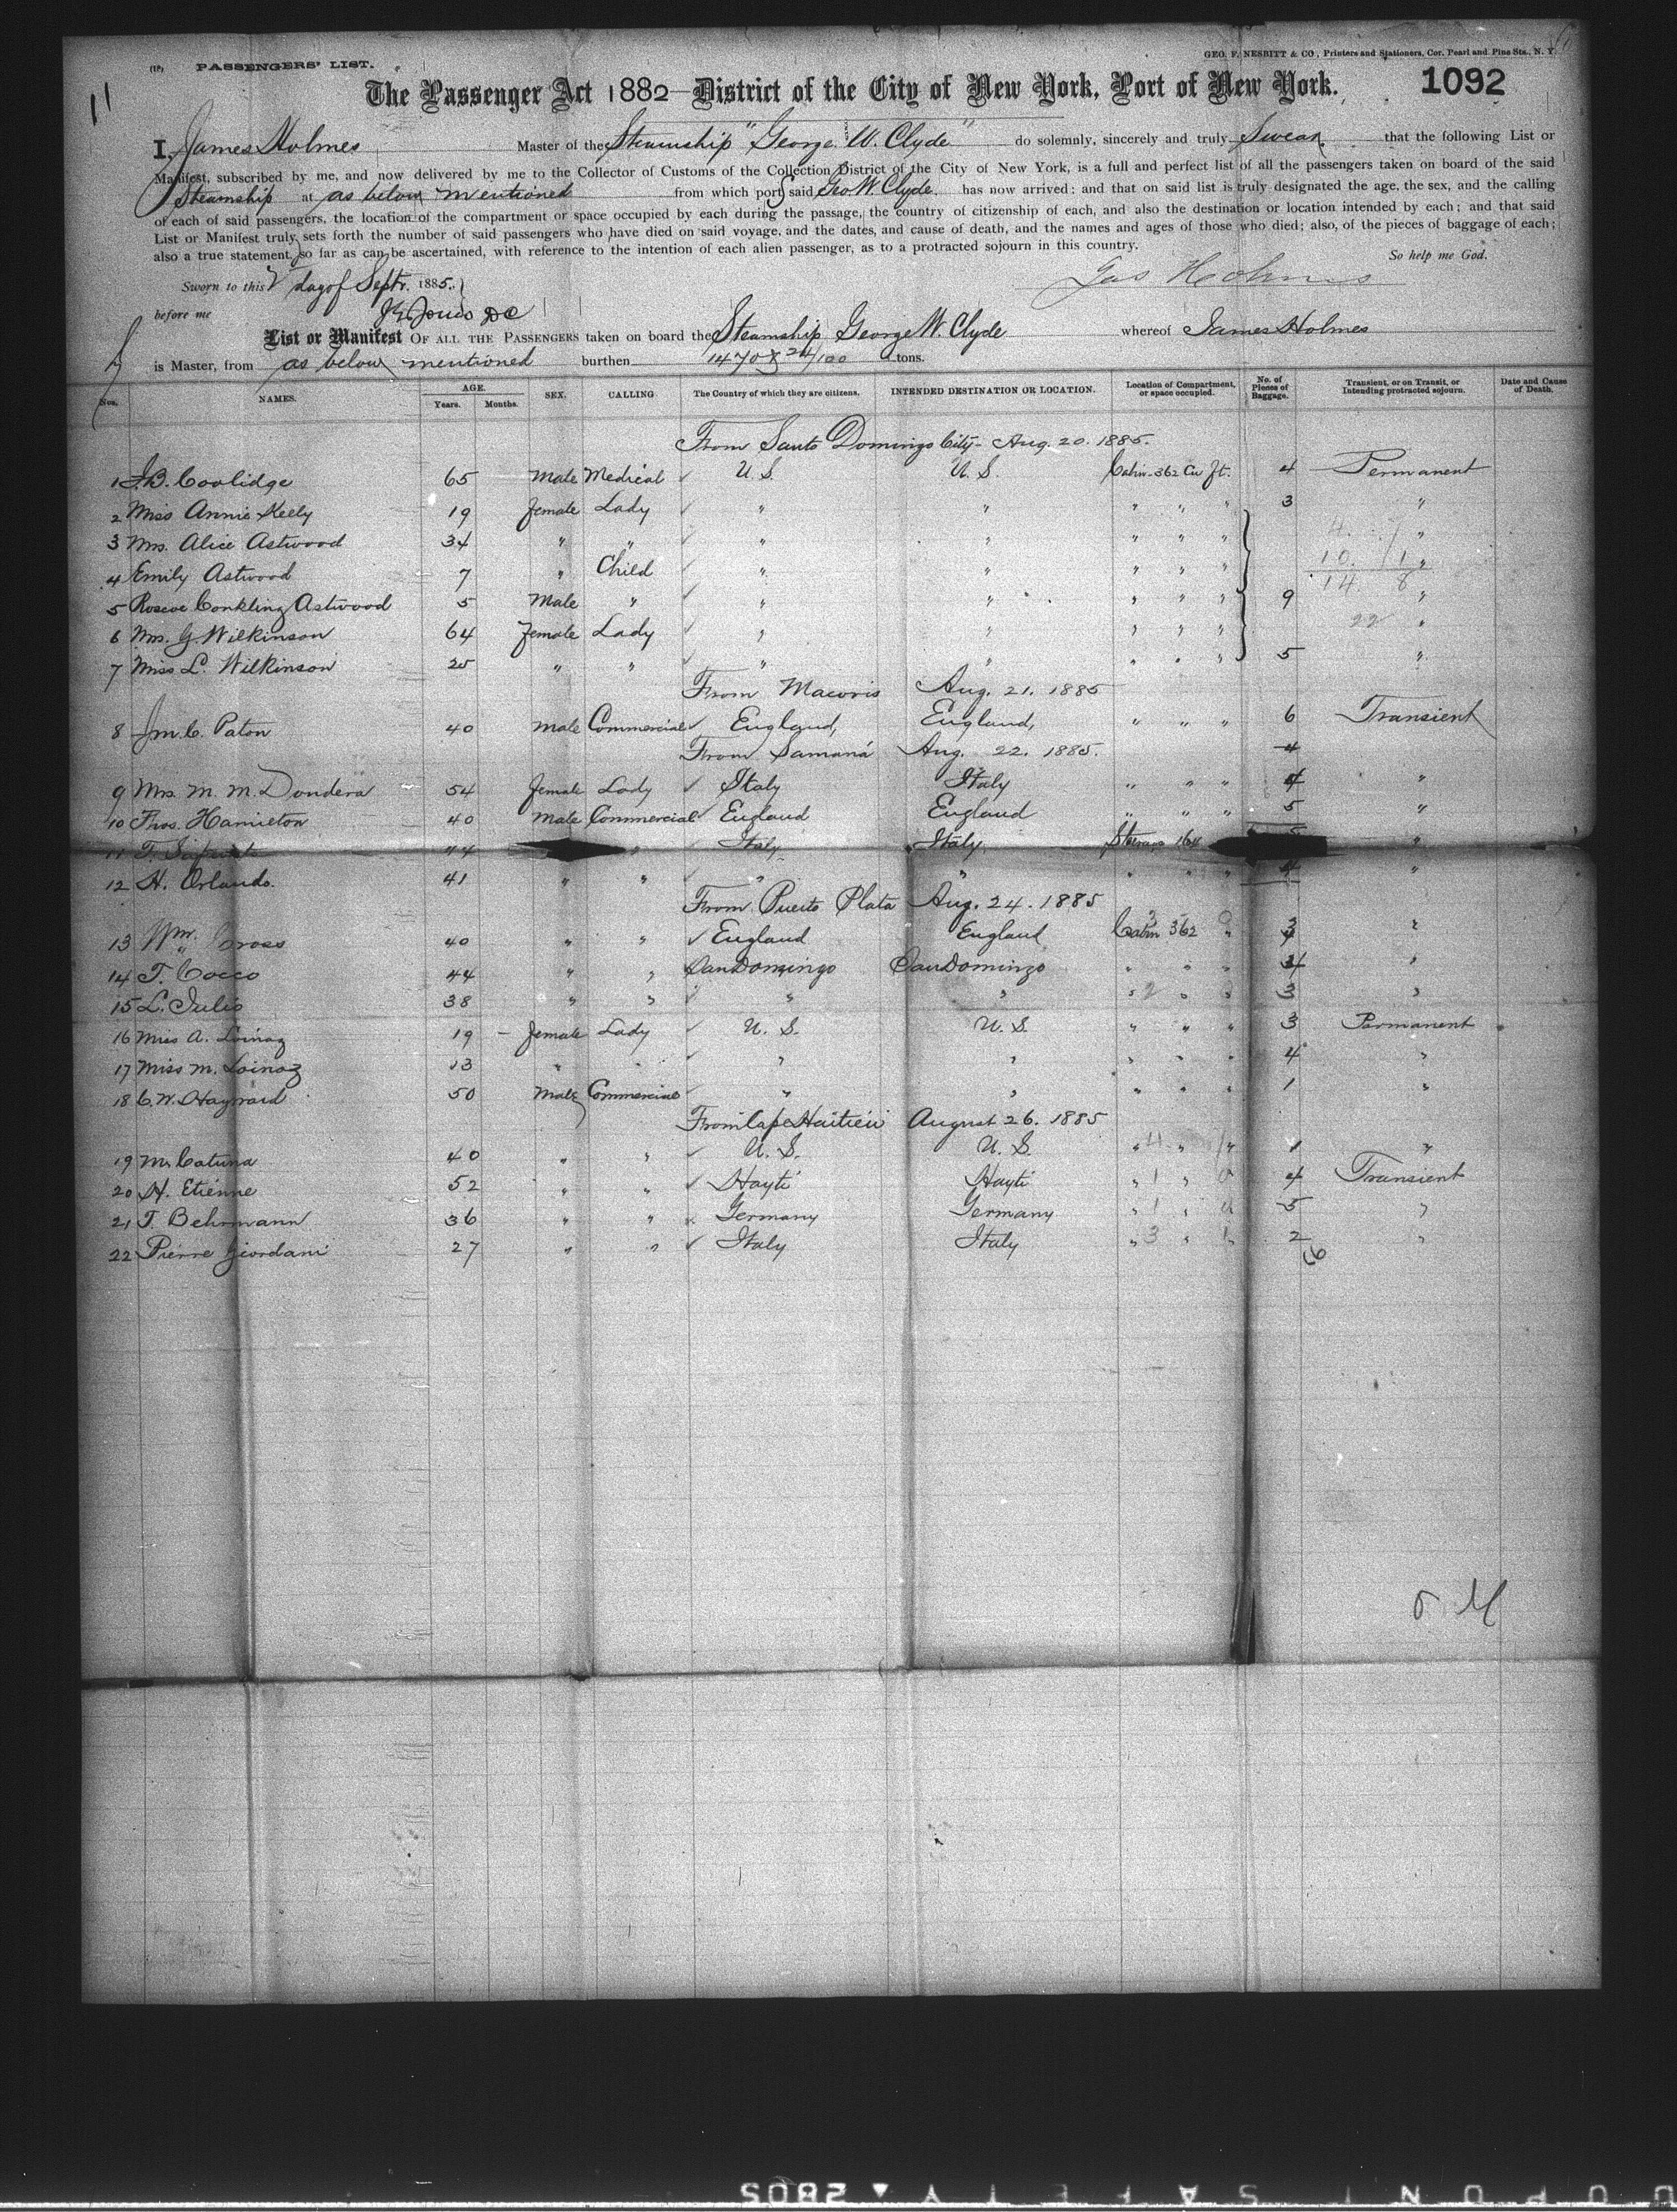 (18) PASSENGERS' LIST.
GEO. F. NESBITT & CO., Printers and Stationers, Cor. Pearl and Pine Sts., N. Y.
11
The Passenger Act 1882—District of the City of New York, Port of New York. 1092
I, James Holmes Master of the Steamship "George W. Clyde" do solemnly, sincerely and truly Swear that the following List or
Manifest, subscribed by me, and now delivered by me to the Collector of Customs of the Collection District of the City of New York, is a full and perfect list of all the passengers taken on board of the said
Steamship at as below mentioned from which port said Geo W. Clyde. has now arrived; and that on said list is truly designated the age, the sex, and the calling
of each of said passengers, the location of the compartment or space occupied by each during the passage, the country of citizenship of each, and also the destination or location intended by each; and that said
List or Manifest truly sets forth the number of said passengers who have died on said voyage, and the dates, and cause of death, and the names and ages of those who died; also, of the pieces of baggage of each;
also a true statement, so far as can be ascertained, with reference to the intention of each alien passenger, as to a protracted sojourn in this country. So help me God.
Sworn to this day of Septr. 1885. Jas Holmes
before me
List or Manifest OF ALL THE PASSENGERS taken on board the Steamship George W. Clyde whereof James Holmes
is Master, from as below mentioned burthen 1470 24/100 tons.
Nos. NAMES. AGE. Years. Months. SEX. CALLING. The Country of which they are citizens. INTENDED DESTINATION OR LOCATION. Location of Compartment, or space occupied. No. of Pieces of Baggage. Transient, or on Transit, or Intending protracted sojourn. Date and Cause of Death.
From Santo Domingo City - Aug. 20. 1885.
1 J.B. Coolidge 65 Male Medical ✓ U. S. U. S Cabin 362 Cu ft. 4 Permanent
2 Miss Annie Kelly 19 female Lady ✓ " " " " " 3 "
3 Mrs. Alice Astwood 34 " " ✓ " " " " " "
4 Emily Astwood 7 " Child ✓ " " " " " "
5 Roscoe Conkling Astwood 5 Male " ✓ " " " " " 9 "
6 Mrs. G Wilkinson 64 female Lady ✓ " " " " " "
7 Miss L. Wilkinson 25 " " ✓ " " " " " 5 "
From Macoris Aug. 21. 1885
8 Jm. C. Paton 40 male Commercial ✓ England, England, " " " 6 Transient
From Samaná Aug. 22. 1885. 4
9 Mrs. M. M. Dondera 54 female Lady ✓ Italy Italy " " " 4 "
10 Thos. Hamilton 40 male Commercial ✓ England England " " " 5 "
11 T. 44 " ✓ Italy Italy 164 "
12 H. Orlando. 41 " " ✓ " " " " " 4 "
From Puerto Plata Aug. 24. 1885
13 Wm. Cross 40 " " ✓ England England Cabin 362 " 3 "
14 T. Cocco 44 " " San Domingo San Domingo " " " 4 "
15 L. Julio 38 " " ✓ " " " " " 3 "
16 Miss A. Loinaz 19 female Lady ✓ U. S. U. S. " " " 3 Permanent
17 Miss M. Loinaz 13 " " ✓ " " " " " 4 "
18 C. W. Hayward 50 Male Commercial ✓ " " " " " 1 "
From Cape Haitien August 26. 1885
19 M. Catuna 40 " " ✓ U. S. U. S. " " " 1 "
20 H. Etienne 52 " " ✓ Hayti Hayti " " 4 Transient
21 T. Behrmann 36 " " Germany Germany " " 5 "
22 Pierre Giordani 27 " " ✓ Italy Italy " " " 2 "